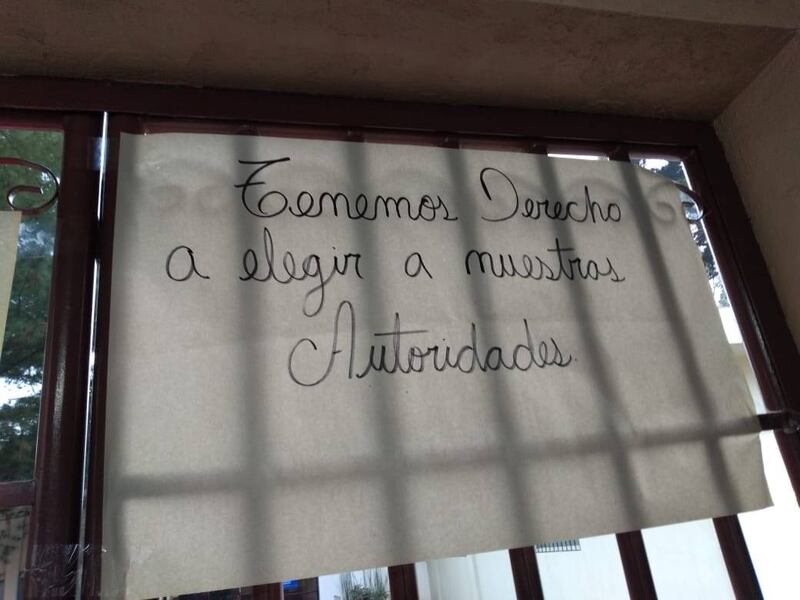 Tenemos Derecho
a elegir a nuestras
Autoridades.